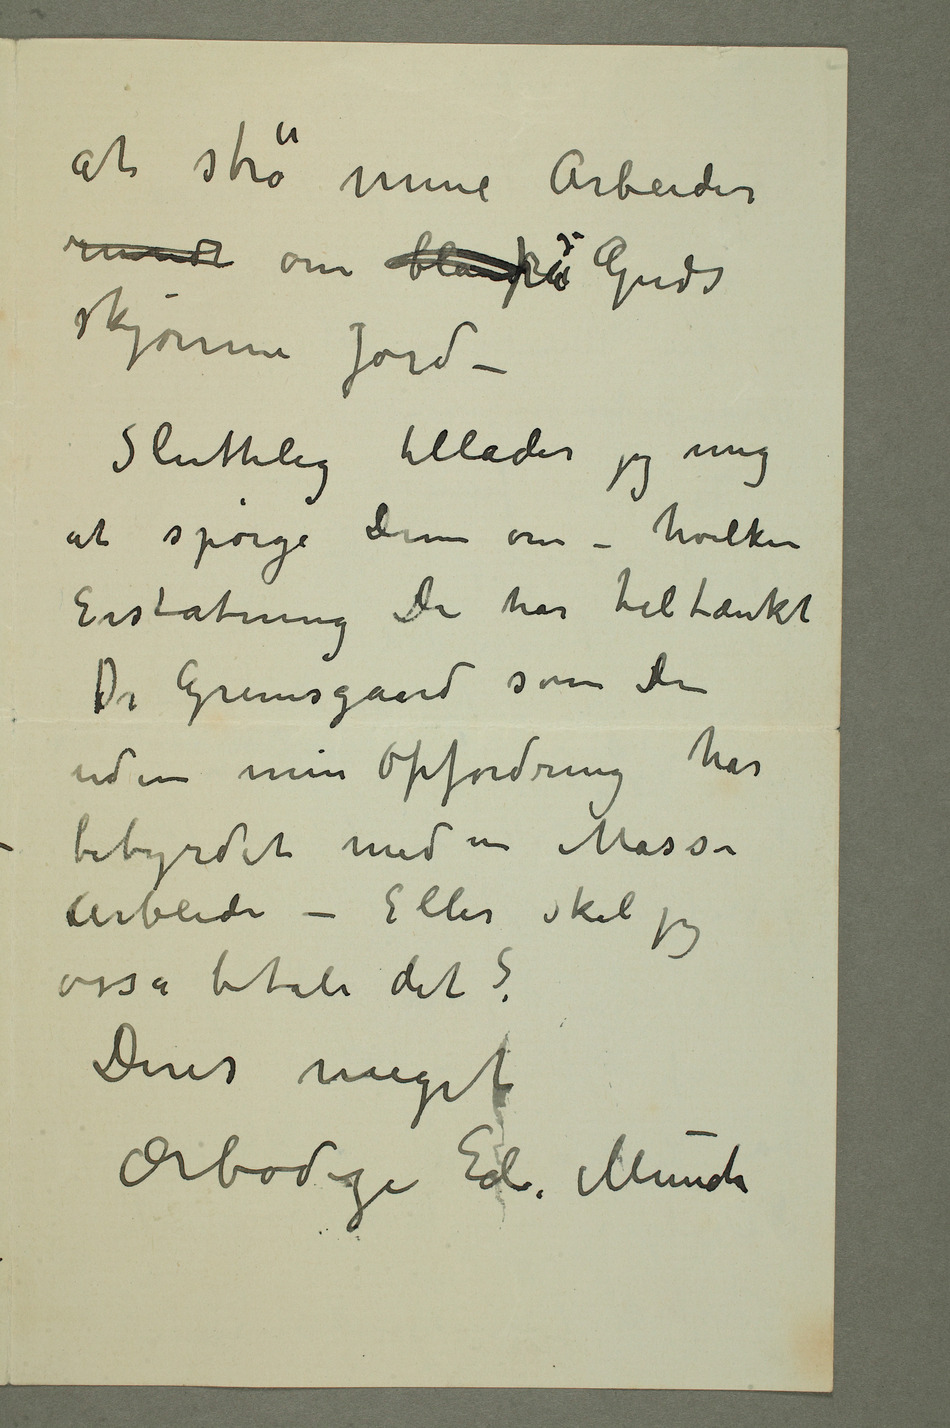 at strö mine Arbeider
rundt om på Guds
skjønne Jord –
Sluttelig tillader jeg mig
at spørge Dem om – hvilken
Erstatning De har tiltænkt
Dr Grimsgaard som De
uden min Opfordring har
bebyrdet med en Masse
Arbeide – Eller skal jeg
osså betale det?
Deres meget
Ærbødige Edv. Munch